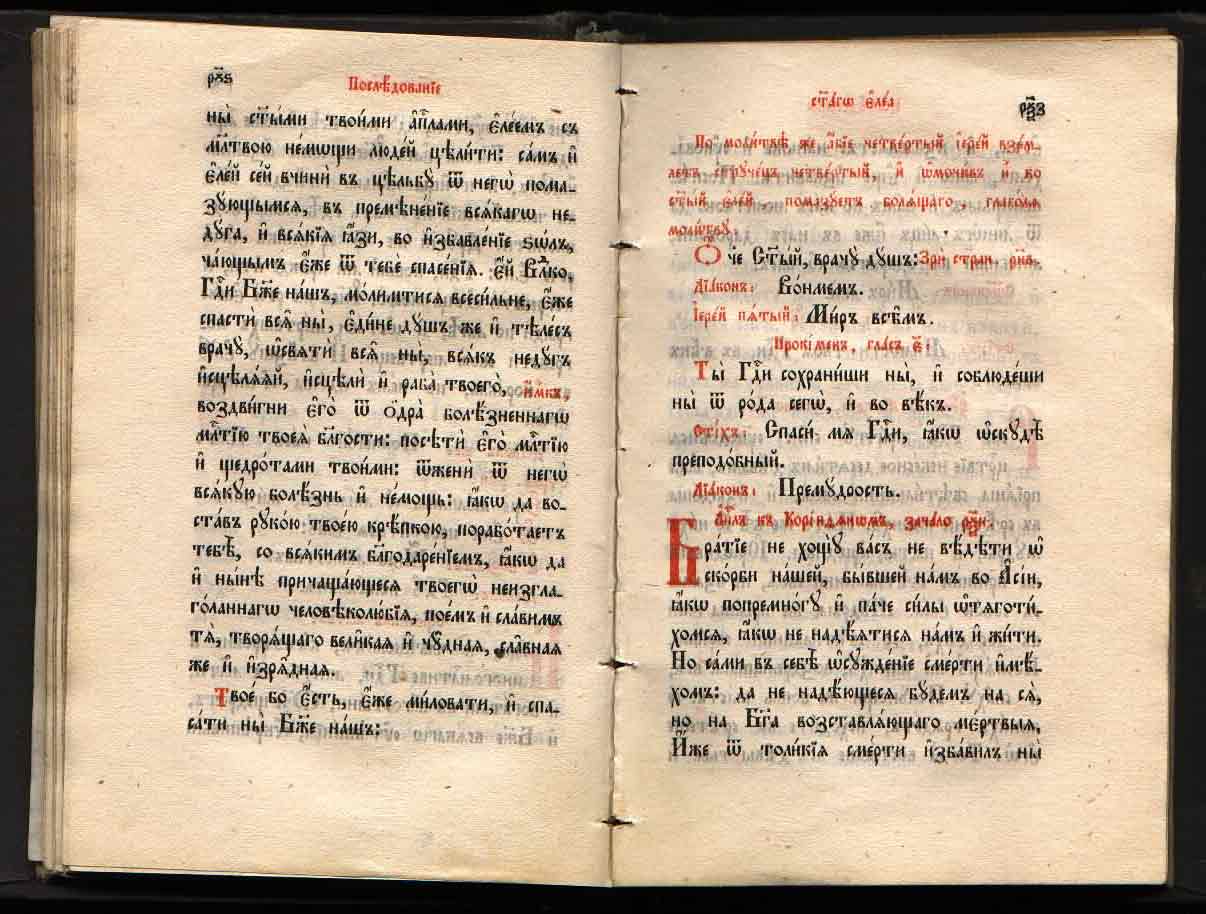 рѯ҃ѕ
Послѣ́дованїе
ны̀ ст҃ы́ми твои́ми а҆пⷭ҇лами, є҆ле́емъ съ
мл҃твою не́мѡщи люде́й цѣли́ти: са́мъ и҆
є҆ле́й се́й вчинѝ въ цѣльбꙋ̀ ѿ негѡ̀ пома-
зꙋющымсѧ, въ премѣне́нїе всѧ́кагѡ не-
дꙋ́га, и҆ всѧ́кїѧ ꙗ҆́зи, во и҆збавле́нїе ѕѡ́лъ,
ча́ющымъ є҆́же ѿ тебє̀ спасе́нїѧ. Є҆́й Влⷣко,
Гдⷭ҇и Бж҃е на́шъ, мо́лимтисѧ всеси́льне, є҆́же
спастѝ всѧ̀ ны̀, є҆ди́не дꙋ́шъ же и҆ тѣле́съ
врачꙋ̀, ѡ҆свѧтѝ всѧ̀ ны̀, всѧ́къ недꙋ́гъ
и҆сцѣлѧ́ѧй, и҆сцѣлѝ и҆ раба̀ твоего̀, и҆́м҃къ,
воздви́гни є҆го̀ ѿ ѻ҆дра̀ болѣ́зненнагѡ
млⷭ҇тїю твоеѧ̀ бл҃гости: посѣтѝ є҆го̀ млⷭ҇тїю
и҆ щедро́тами твои́ми: ѿженѝ ѿ негѡ̀
всѧ́кꙋю болѣ́знь и҆ не́мощь: ꙗ҆́кѡ да во-
ста́въ рꙋко́ю твое́ю крѣ́пкою, порабо́таетъ
тебѣ̀, со всѧ́кимъ бл҃годаре́нїемъ, ꙗ҆́кѡ да
и҆ ны́нѣ причаща́ющесѧ твоегѡ̀ неизгла-
го́ланнагѡ человѣколю́бїѧ, пое́мъ и҆ сла́вимъ
тѧ̀, творѧ́щаго вели̑каѧ и҆ чꙋ̑днаѧ, сла̑внаѧ
же и҆ и҆зрѧ̑днаѧ.
Твое́ бо є҆́сть, є҆́же ми́ловати, и҆ спа-
са́ти ны̀ Бж҃е на́шъ:
ст҃а́гѡ є҆ле́а
рѯ҃з
По моли́твѣ же а҆́бїе четве́ртый і҆ере́й взе́м-
летъ стрꙋ́чецъ четве́ртый, и҆ ѡ҆мочи́въ и҆̀ во
ст҃ы́й є҆ле́й, помазꙋ́етъ болѧ́щаго, глаго́лѧ
моли́твꙋ.
Ѻ҆́ч҃е Ст҃ы́й, врачꙋ̀ дꙋ́шъ: Зри стран.
Дїа́конъ: Во́нмемъ.
І҆ере́й пѧ́тый: Ми́ръ всѣ̑мъ.
Прокі́менъ, гла́съ є҃:
Ты̀ Гдⷭ҇и сохрани́ши ны̀, и҆ соблюде́ши
ны̀ ѿ ро́да сегѡ̀, и҆ во вѣ́къ.
Сті́хъ: Спаси́ мѧ Гдⷭ҇и, ꙗ҆́кѡ ѡ҆скꙋдѣ̀
преподо́бный.
Дїа́конъ: Премꙋ́дрость.
А҆пⷭ҇лъ къ Корі́нѳѧнѡмъ, зача́ло рѯ҃и.
Бра́тїе не хощꙋ̀ ва́съ не вѣ́дѣти ѡ҆
ско́рби на́шей, бы́вшей на́мъ во А҆сі́и,
ꙗ҆́кѡ попремно́гꙋ и҆ па́че си́лы ѡ҆тѧготи́-
хомсѧ, ꙗ҆́кѡ не надѣ́ѧтисѧ на́мъ и҆ жи́ти.
Но са́ми въ себѣ̀ ѡ҆сꙋжде́нїе сме́рти и҆мѣ́-
хомъ: да не надѣ́ющесѧ бꙋ́демъ на сѧ̀,
но на Бг҃а возставлѧ́ющаго ме́ртвыѧ,
И҆́же ѿ толи́кїѧ сме́рти и҆зба́вилъ ны̀